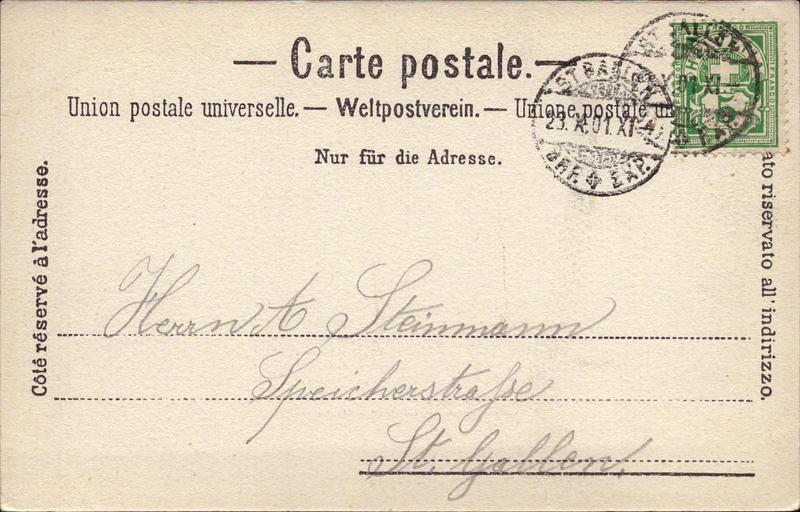 — Carte postale. —
Union postale universelle. — Weltpostverein. — Unione postale un
Nur für die Adresse.
Côté réservé à l'adresse.
ato riservato all' indirizzo.
ST. GALLEN
23. X. 01. XI
BRF. EXP.
FRANCO
Herrn A Steinmann
Speicherstrasse
St. Gallen.